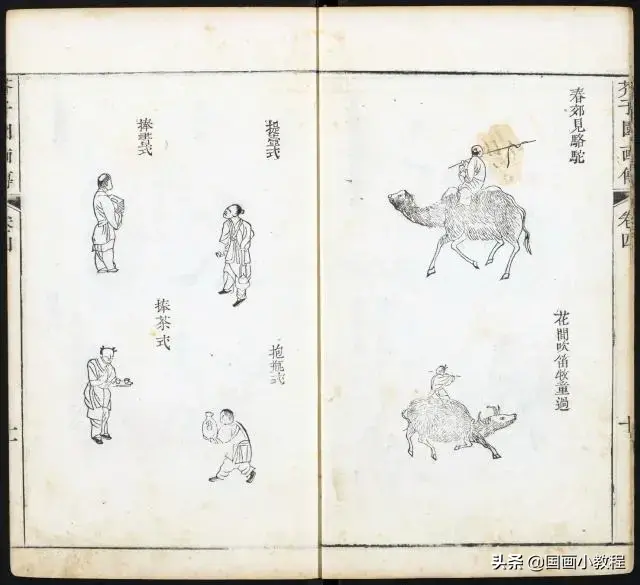 芥子園画傳
卷四
十
春郊見駱駝
花間吹笛牧童過
提壺式
捧書式
抱瓶式
捧茶式
芥子園画傳
卷四
十一
头条 @国画小教程